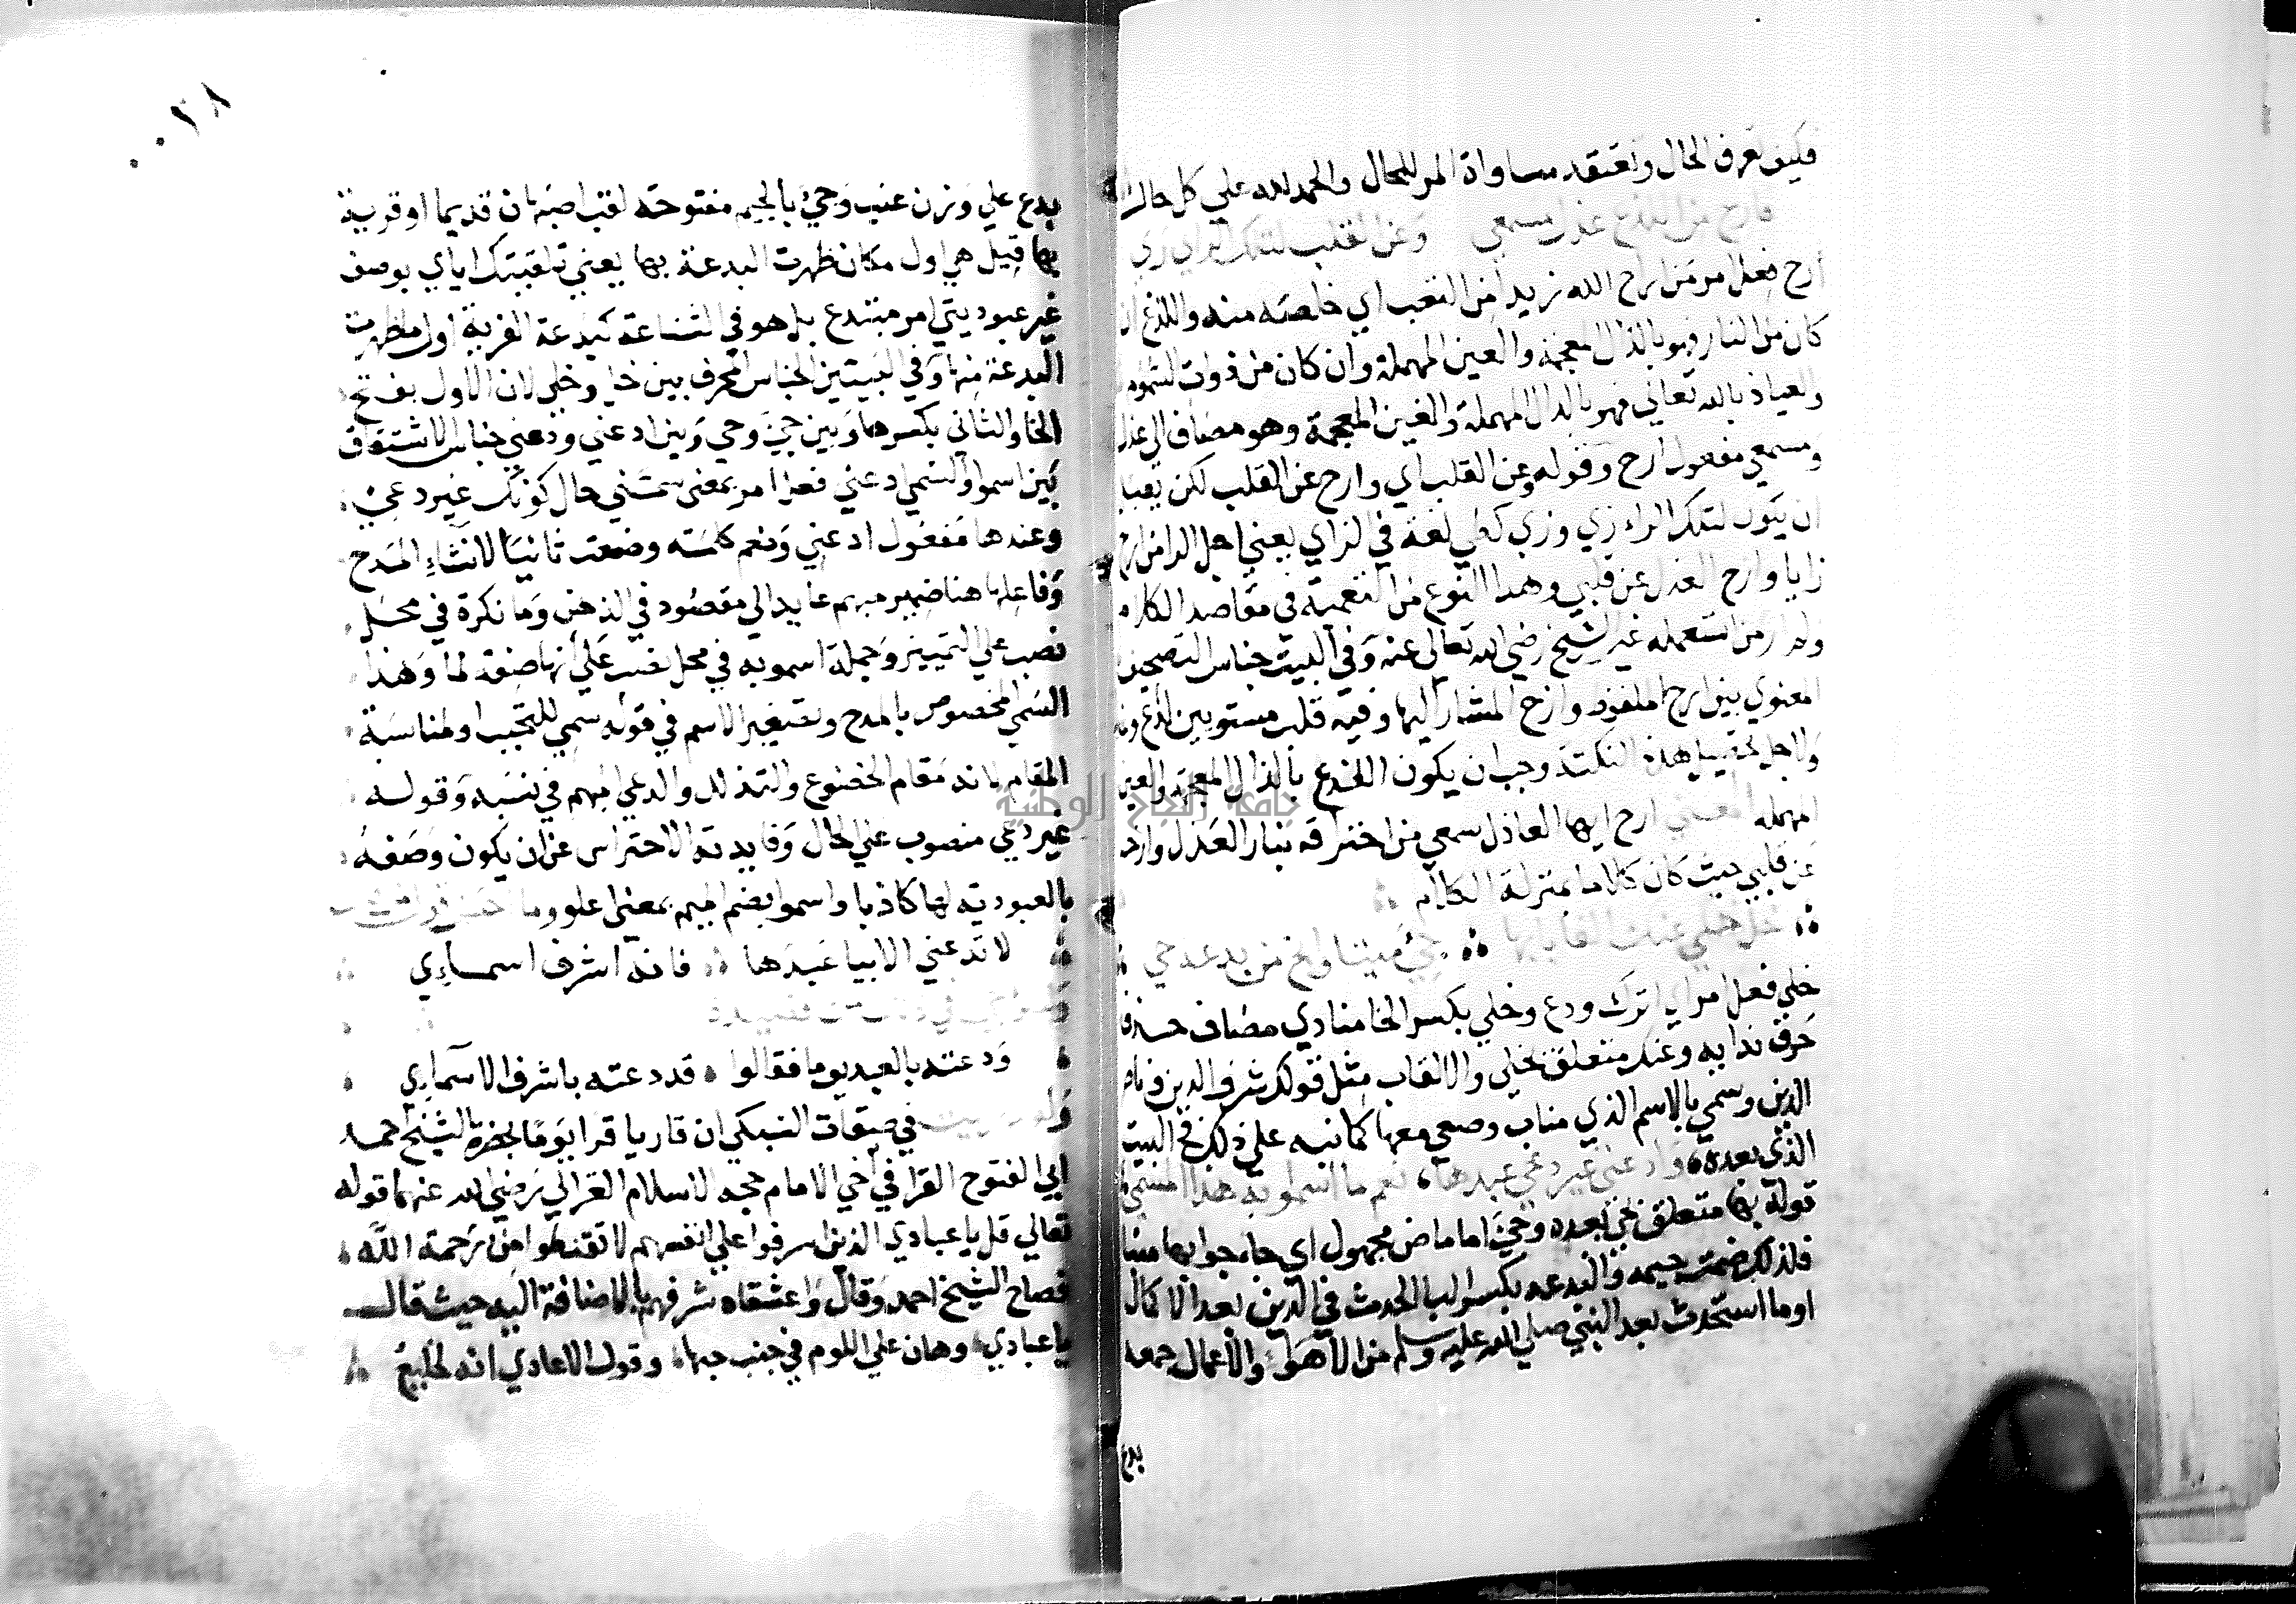 فكيف تعرف الحال وتعتقد مساواة المر للحال والحمد لله علي كل حال
فارح من لذع عذل مسمعي وعن القلب لتلك الراي زي
ارح فعل امر من اراح الله زيدا من التعب اي خلصه منه واللذع ان
كان من النار فهو بالذال المعجمة والعين المهملة وان كان من ذوات السموم
والعياذ بالله تعالي فهو بالدال المهملة والغين المعجمة وهو مضاف الي عذل
ومسمعي مفعول ارح وقوله وعن القلب اي وارح عن القلب لكن بقينا
ان يكون لتلك الراء زي وزي كطي لغة في الزاي يعني اجعل الرا من ارح
زايا وازح العذل عن قلبي وهذا النوع من التعمية في مقاصد الكلام
ولم ار من استعمله غير الشيخ رضي الله تعالي عنه وفي البيت جناس التصحيف
المعنوي بين ارح الملفوظ وازح المشار اليها وفيه قلب مستو بين لذع
ولاجل تحصيل هذه النكتة وجب ان يكون اللذع بالذال المعجمة والعين
المهملة المعني ارح ايها العاذل سمعي من احتراقه بنار العذل وازح
عن قلبي حيث كان كلاما بمنزلة الكلام
خل خلي عنك القابا بها جئ مينا وانج من بدعة جي
خلي فعل امر اي اترك ودع وخلي بكسر الخا منادي مضاف حذف
حرف ندايه وعنك متعلق بخلي والالقاب مثل قولك شرف الدين وناصر
الدين وسمي بالاسم الذي مناب وصعي معها كما نبه علي ذلك في البيت
الذي بعده وادعني غير دعي عبدها نعم ما اسمو به هذا السمي
قوله بها متعلق بجي بعده وجئ اما ماض مجهول اي جاء جوابها مينا
فلذلك ضمت جيمه والبدعة بكسر البا الحدث في الدين بعد الاكمال
او ما استحدث بعد النبي صلي الله عليه وسلم من الاهواء والاعمال جمعه
بدع
٠٠٢٨
بدع علي وزن عنب وجئ بالجيم مفتوحة لقب اصبهان قديما او قرية
بها قيل هي اول مكان ظهرت البدعة بها يعني تلقيبتك اياي بوصف
غير عبوديتي امر مبتدع بل هو في الشناعة كبدعة القرية اول ما ظهرت
البدعة منها وفي البيتين الجناس المحرف بين خل وخلي لان الاول بفتح
الخا والثاني بكسرها وبين جئ وجي وبين ادعني ودعي جناس الاشتقاق
بين اسمو والسمي ادعني فعل امر بمعني سمني حال كونك غير دعي
وعبدها مفعول ادعني ونعم كلمة وضعت ثانيا لانشاء المدح
وفاعلها هنا ضمير مبهم عايد الي مقصود في الذهن وما نكرة في محل
نصب علي التمييز وجملة اسمو به في محل نصب علي انها صفة لما وهذا
السمي المخصوص بالمدح وتصغير الاسم في قوله سمي للتحبب او لمناسبة
المقام لانه مقام الخضوع والتذلل والدعي المبهم في نسبه وقوله
غير دعي منصوب علي الحال وفايدته الاحتراس عن ان يكون وصفه
بالعبودية لها كاذبا واسمو بضم الميم بمعني اعلو وما احسن قول
لا تدعني الا بيا عبدها فانه اشرف اسماءي
ودعته بالعبد يوما فقالوا قد دعته باشرف الاسماءي
في طبقات السبكي ان قاريا قرا يوما بحضرة الشيخ احمد
ابي الفتوح الغزالي اخي الامام حجه الاسلام الغزالي رضي الله عنهما قوله
تعالي قل يا عبادي الذين اسرفوا علي انفسهم لا تقنطوا من رحمة الله
فصاح الشيخ احمد وقال واعشقاه شرفهم بالاضافة اليه حيث قال
يا عبادي وهان علي اللوم في جنب حبها وقول الاعادي انه لخليع